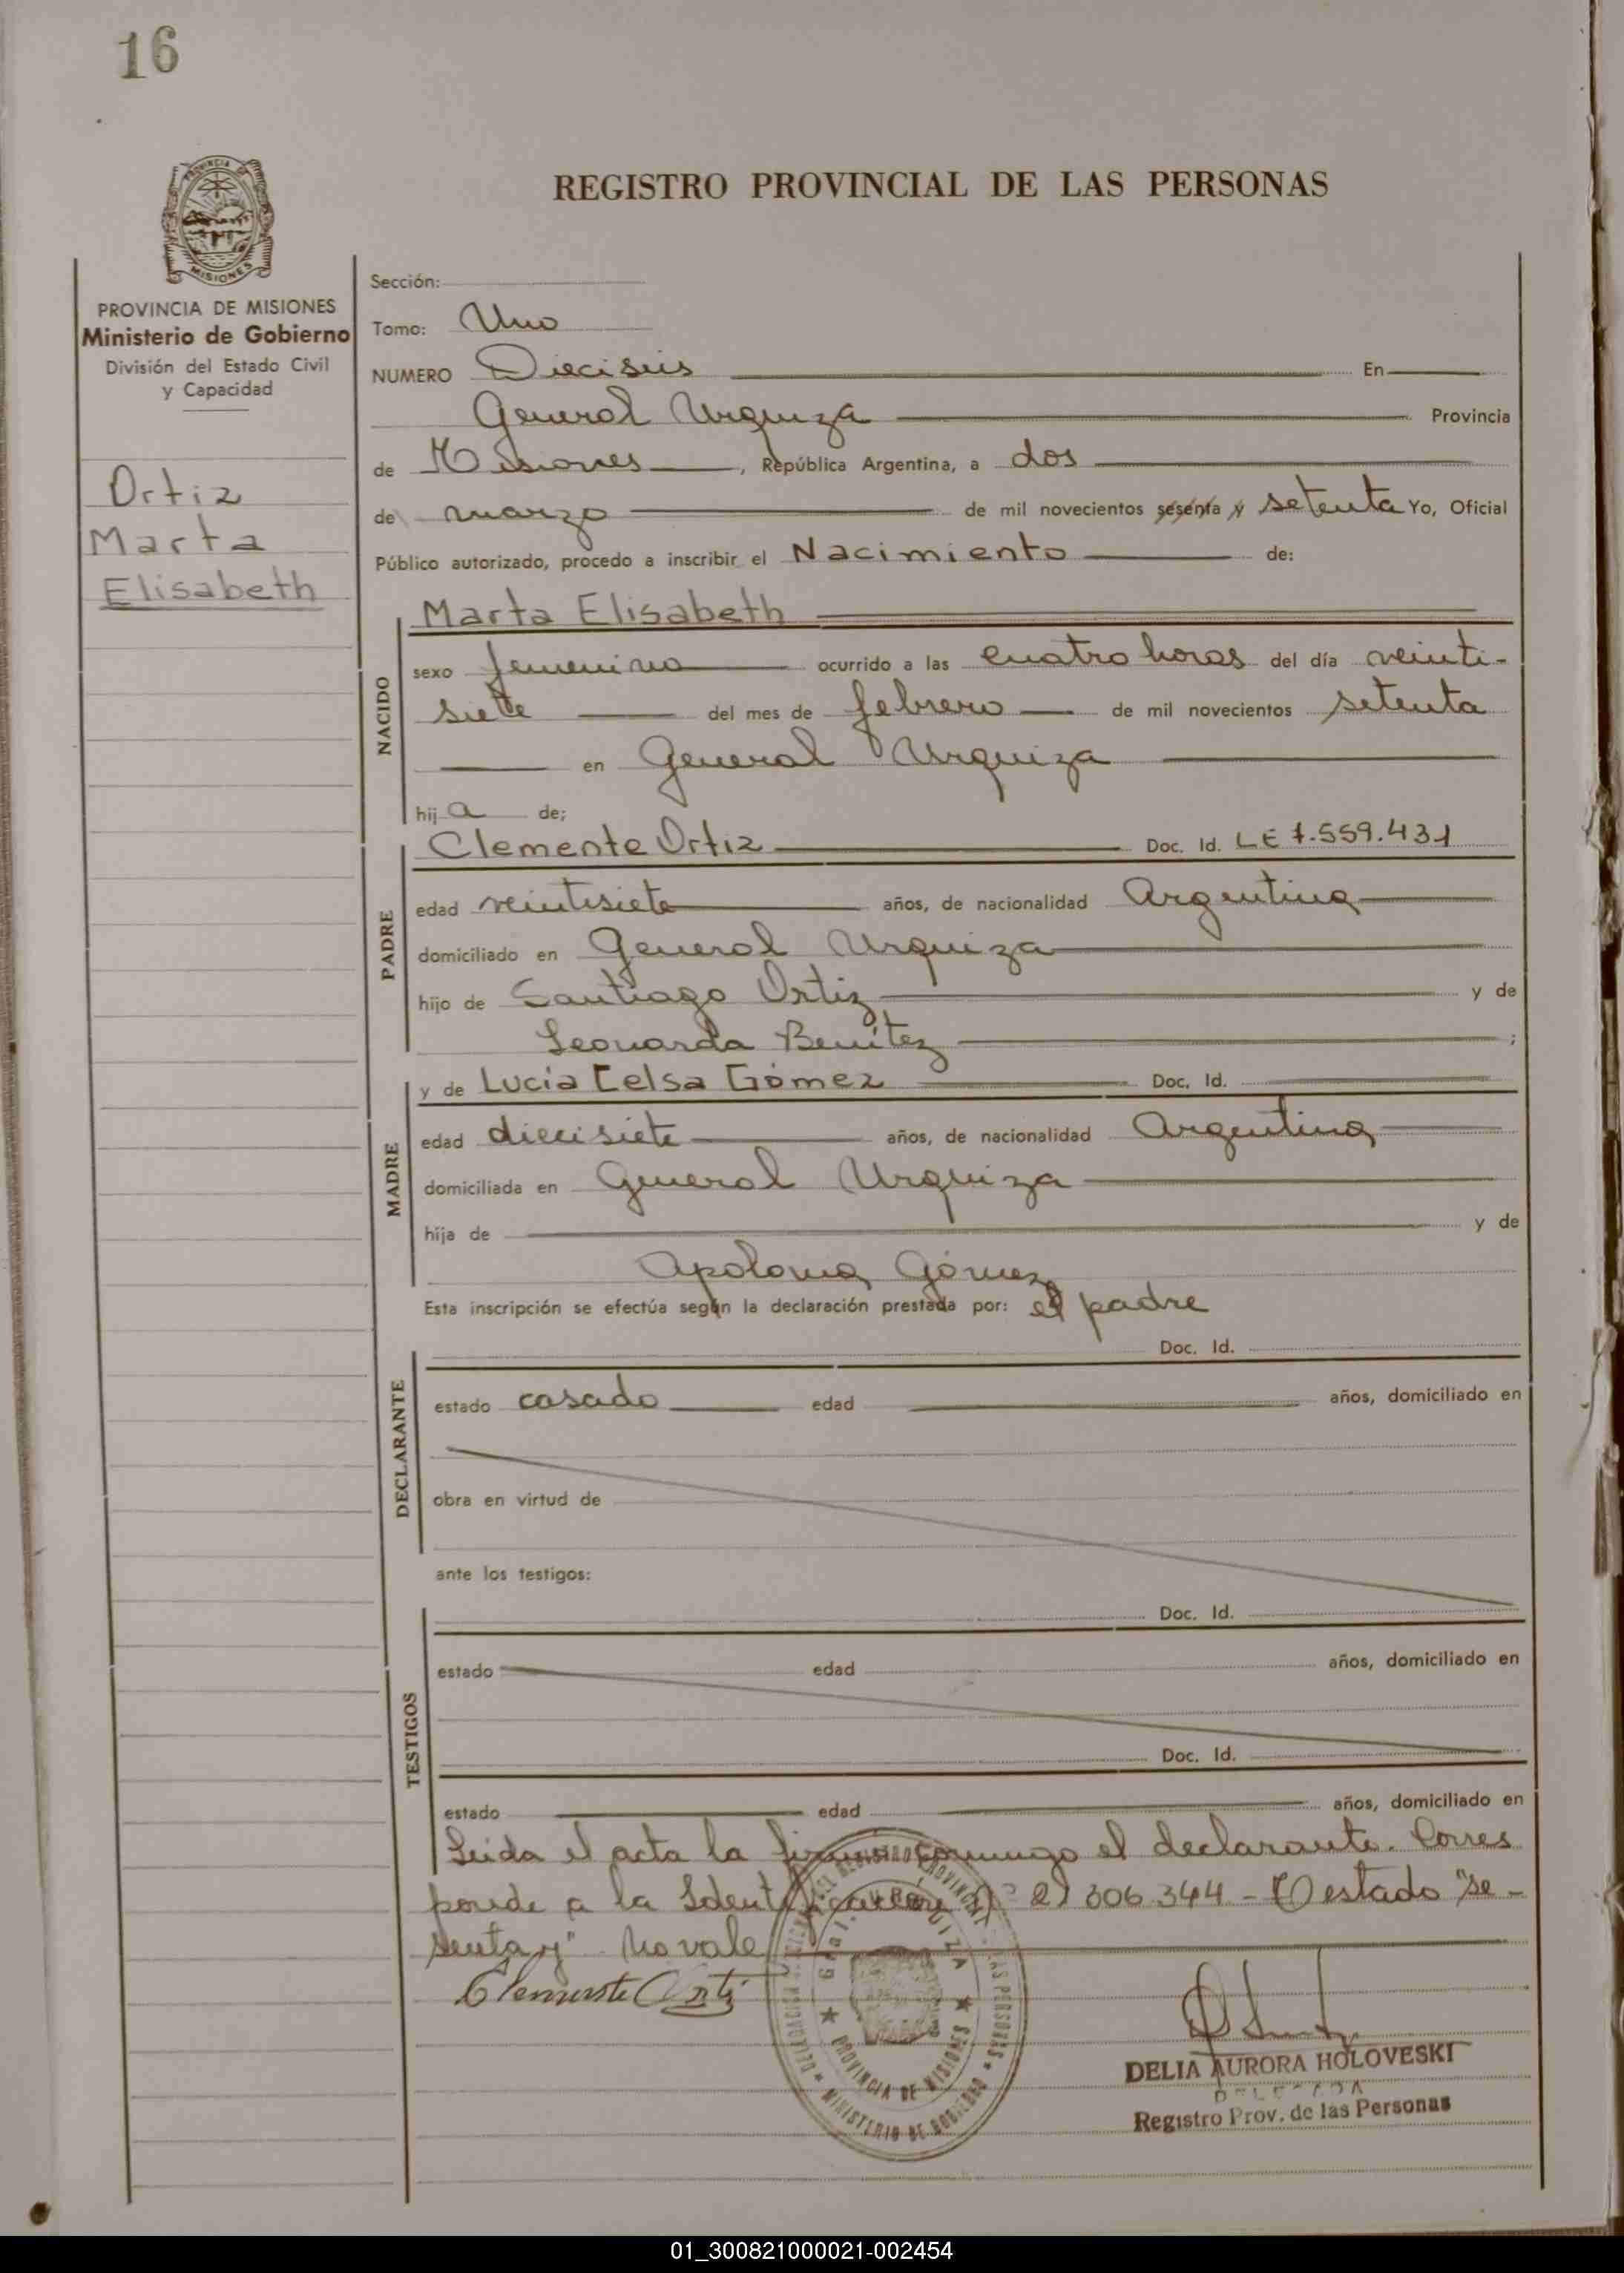 16
REGISTRO PROVINCIAL DE LAS PERSONAS
PROVINCIA DE MISIONES
Ministerio de Gobierno
División del Estado Civil
y Capacidad
Ortiz
Marta
Elisabeth
Sección:
Tomo: Uno
NUMERO Dieciseis En
General Urquiza Provincia
de Misiones, República Argentina, a dos
de marzo de mil novecientos sesenta y setenta Yo, Oficial
Público autorizado, procedo a inscribir el Nacimiento de:
NACIDO
Marta Elisabeth
sexo femenino ocurrido a las cuatro horas del día veinti-
siete del mes de febrero de mil novecientos setenta
en General Urquiza
hija de;
PADRE
Clemente Ortiz Doc. Id. LE 7.559.431
edad veintisiete años, de nacionalidad Argentina
domiciliado en General Urquiza
hijo de Santiago Ortiz y de
Leonarda Benítez ;
MADRE
y de Lucía Celsa Gómez Doc. Id.
edad diecisiete años, de nacionalidad Argentina
domiciliada en General Urquiza
hija de y de
Apolonia Gómez
Esta inscripción se efectúa según la declaración prestada por: el padre
DECLARANTE
Doc. Id.
estado casado edad años, domiciliado en
obra en virtud de
ante los testigos:
TESTIGOS
Doc. Id.
estado edad años, domiciliado en
Doc. Id.
estado edad años, domiciliado en
Leida el acta la firma conmigo el declarante. Corres
ponde a la Identificación Nº 21 306 344 - Testado "se-
senta y" No vale
Clemente Ortiz
DELIA AURORA HOLOVESKI
DELEGADA
Registro Prov. de las Personas
PROVINCIA DE MISIONES
MINISTERIO DE GOBIERNO
01_300821000021-002454